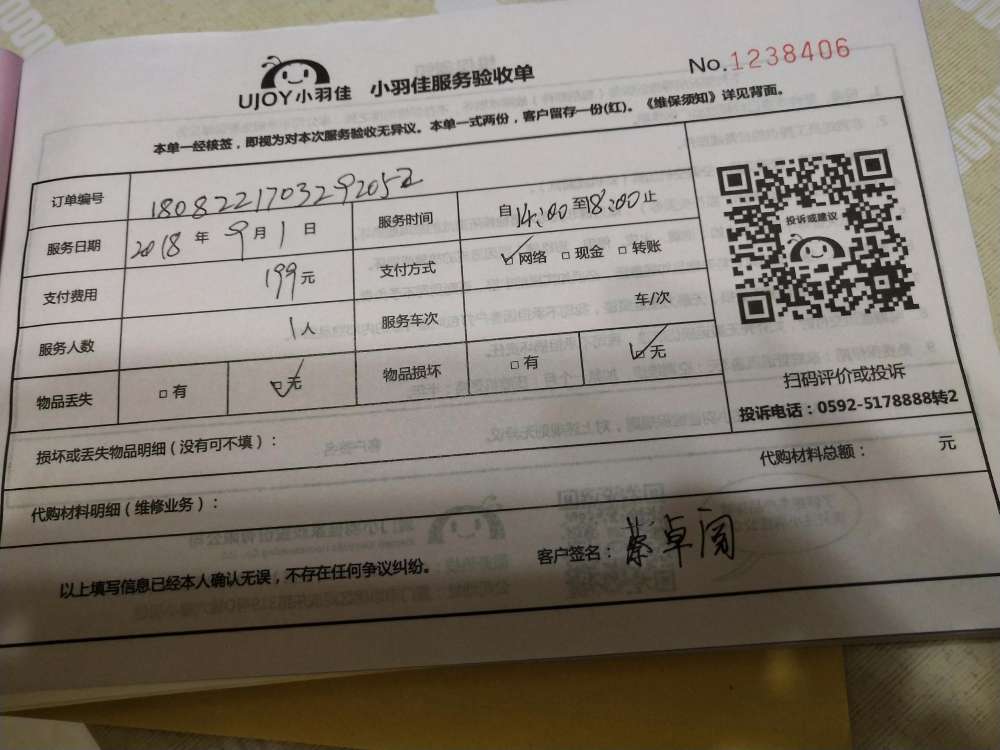 UJOY小羽佳 小羽佳服务验收单 No.1238406
本单一经核签，即视为对本次服务验收无异议。本单一式两份，客户留存一份(红)。《维保须知》详见背面。
订单编号 180822170329205
服务日期 2018 年 9 月 1 日 服务时间 自14:00至18:00止
支付费用 199元 支付方式 ☑网络 □现金 □转账
服务人数 1人 服务车次 车/次
物品丢失 □有 ☑无 物品损坏 □有 ☑无
投诉或建议
扫码评价或投诉
投诉电话：0592-5178888转2
损坏或丢失物品明细（没有可不填）：
代购材料明细（维修业务）： 代购材料总额： 元
以上填写信息已经本人确认无误，不存在任何争议纠纷。 客户签名：蔡卓阅